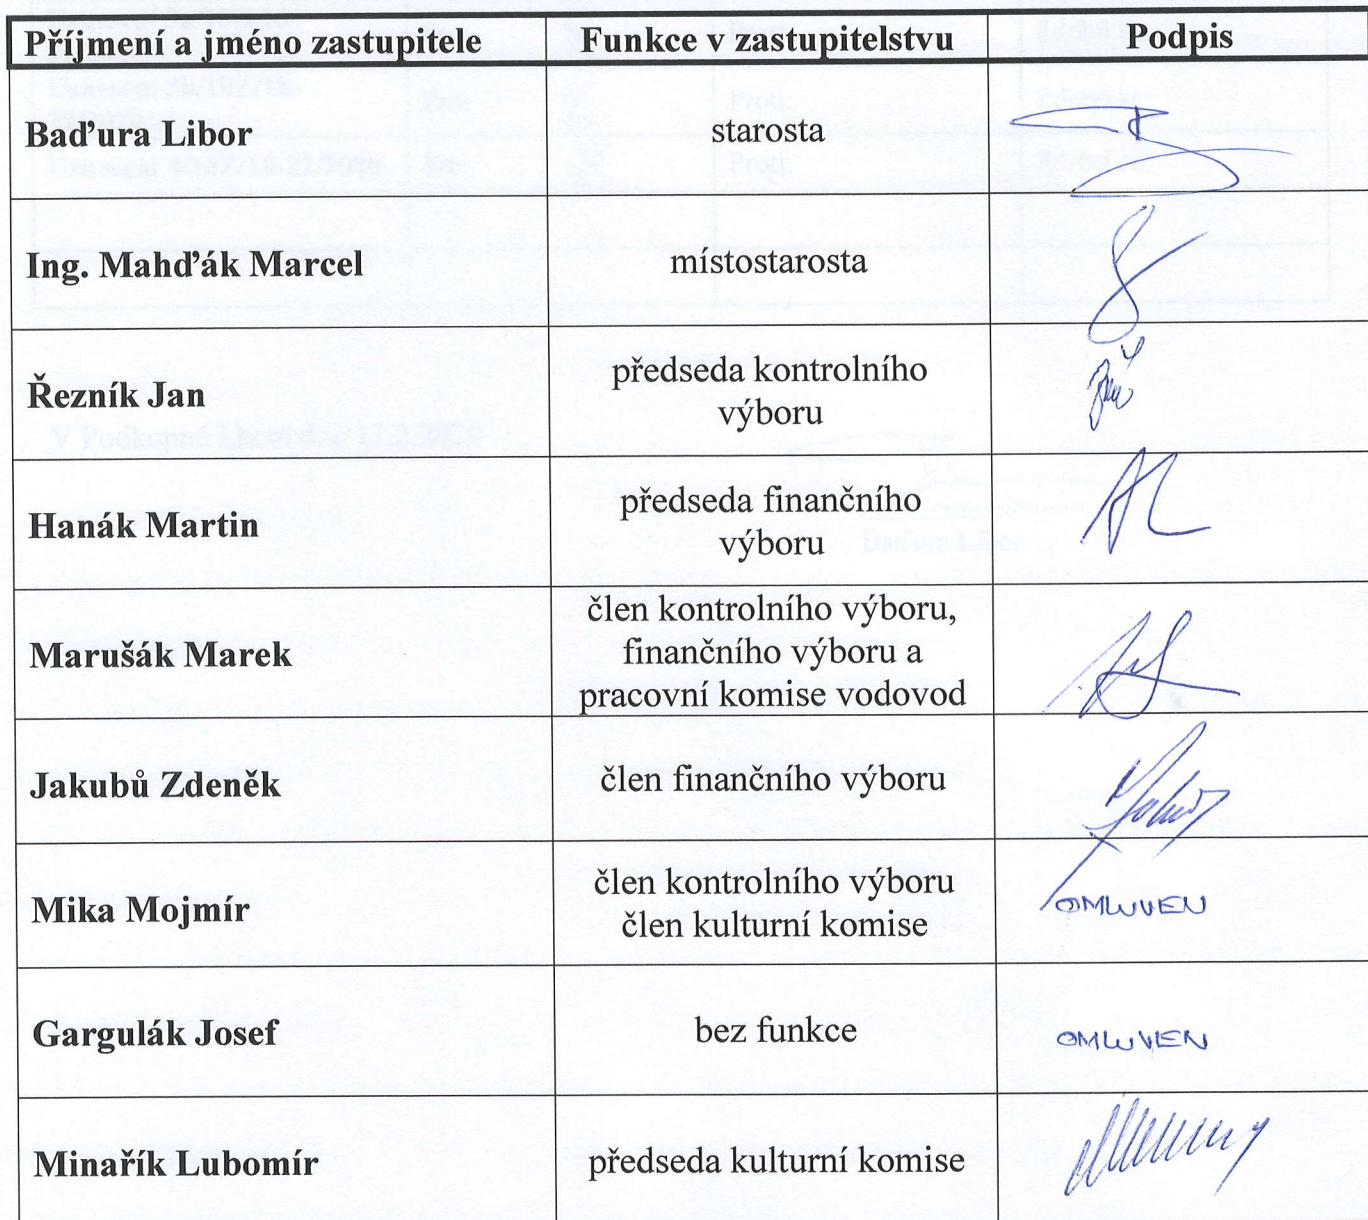 Příjmení a jméno zastupitele Funkce v zastupitelstvu Podpis
Baďura Libor starosta
Ing. Mahďák Marcel místostarosta
Řezník Jan předseda kontrolního
výboru
Hanák Martin předseda finančního
výboru
Marušák Marek člen kontrolního výboru,
finančního výboru a
pracovní komise vodovod
Jakubů Zdeněk člen finančního výboru
Mika Mojmír člen kontrolního výboru
člen kulturní komise
OMLUVEN
Gargulák Josef bez funkce OMLUVEN
Minařík Lubomír předseda kulturní komise